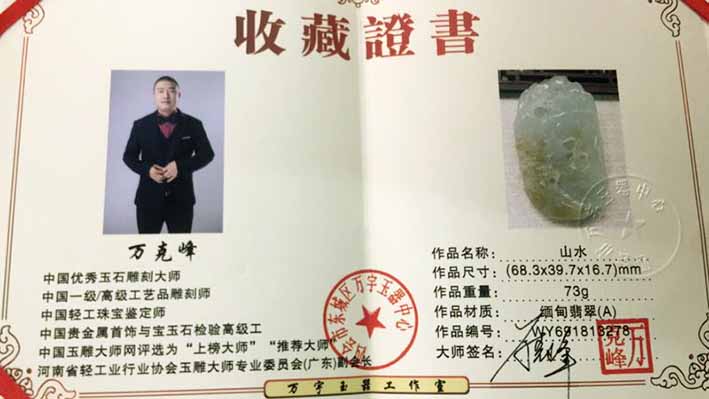 收藏證書
万克峰
中国优秀玉石雕刻大师
中国一级/高级工艺品雕刻师
中国轻工珠宝鉴定师
中国贵金属首饰与宝玉石检验高级工
中国玉雕大师网评选为“上榜大师”“推荐大师”
河南省轻工业行业协会玉雕大师专业委员会(广东)副会长
作品名称: 山水
作品尺寸: (68.3x39.7x16.7)mm
作品重量: 73g
作品材质: 缅甸翡翠(A)
作品编号: WY691818278
大师签名:
会市东城区万字玉器中心
万克峰
万字玉器工作室